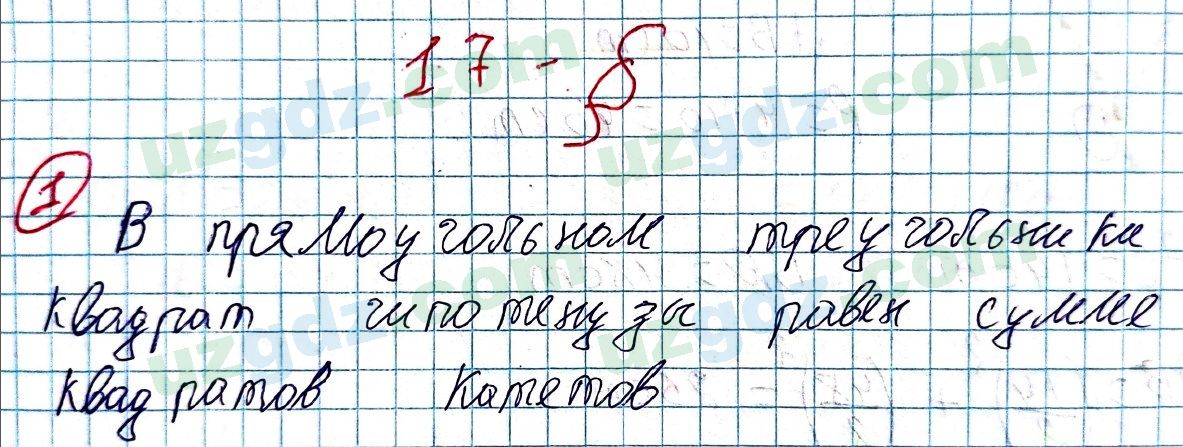 17 - §
1
В прямоугольном треугольники
квадрат гипотенузы равен сумме
квадратов катетов
uzgdz.com